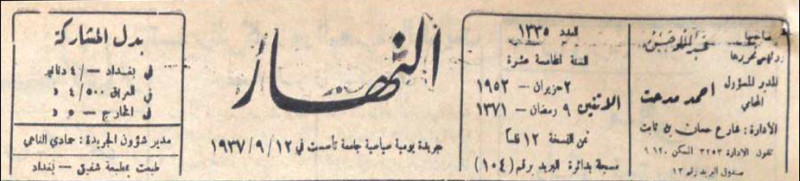 صاحبها
ورئيس تحريرها
عبدالله حسن
المدير المسؤول
المحامي
احمد مدحت
الادارة : شارع حسان بن ثابت
تلفون الادارة ٣٢٥٣ السكن ٩١٢٠
صندوق البريد رقم ١٣
العدد ١٣٣٥
السنة الخامسة عشرة
الاثنين
٢ حزيران — ١٩٥٢
٩ رمضان — ١٣٧١
ثمن النسخة ١٢ فلسا
مسجلة بدائرة البريد برقم (١٠٤)
النهار
جريدة يومية سياسية جامعة تأسست في ١٩٣٧/٩/١٢
بدل المشاركة
في بغداد — /٤ دنانير
في العراق ٤/٥٠٠ د
في الخارج — ٥ د
مدير شؤون الجريدة : حمادي الناهي
طبعت بمطبعة شفيق — بغداد